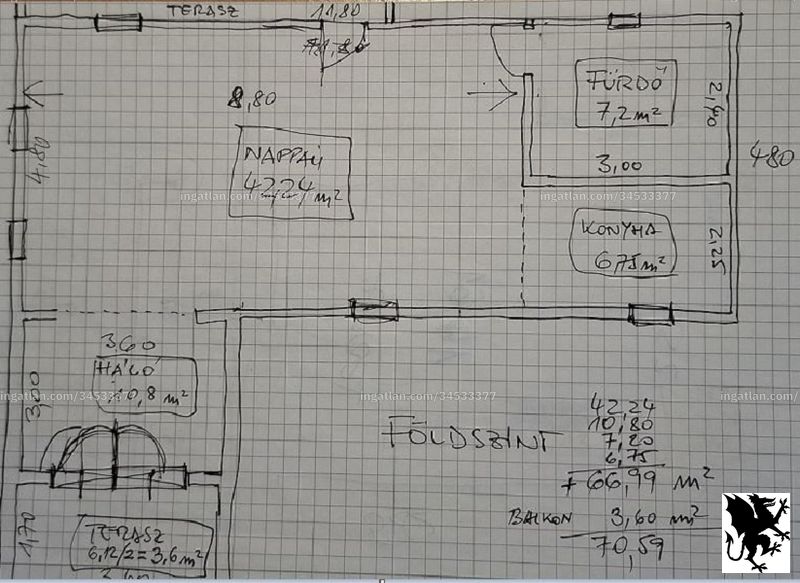 TERASZ
11,80
8,80
4,80
NAPPALI
42,24 m²
FÜRDŐ
7,2 m²
2,40
3,00
480
ingatlan.com/34533377
ingatlan.com/34533377
KONYHA
6,75 m²
2,25
3,60
HÁLÓ
10,8 m²
3,00
ingatlan.com/34533377
ingatlan.com/34533377
ingatlan.com/34533377
FÖLDSZINT
42,24
10,80
7,20
6,75
+ 66,99 m²
BALKON 3,60 m²
70,59
1,70
TERASZ
6,12/2=3,6 m²